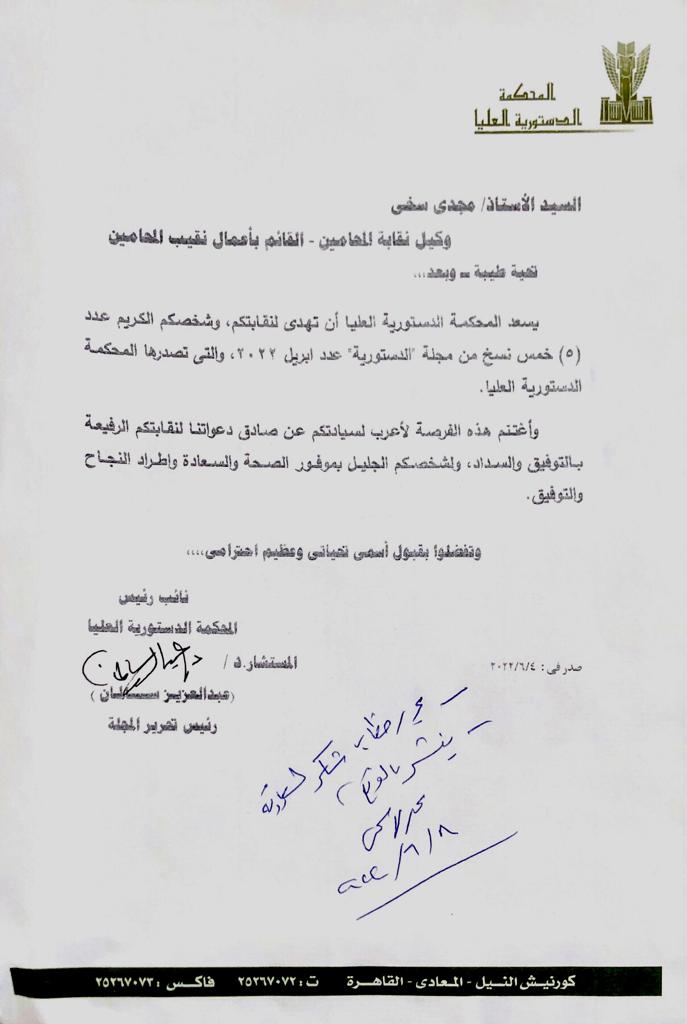 المحكمة
الدستورية العليا
السيد الأستاذ/ مجدى سخى
وكيل نقابة المحامين - القائم بأعمال نقيب المحامين
تحية طيبة – وبعد...
يسعد المحكمة الدستورية العليا أن تهدى لنقابتكم، وشخصكم الكريم عدد
(٥) خمس نسخ من مجلة "الدستورية" عدد ابريل ٢٠٢٢، والتى تصدرها المحكمة
الدستورية العليا.
وأغتنم هذه الفرصة لأعرب لسيادتكم عن صادق دعواتنا لنقابتكم الرفيعة
بالتوفيق والسداد، ولشخصكم الجليل بموفور الصحة والسعادة واطراد النجاح
والتوفيق.
وتفضلوا بقبول أسمى تحياتى وعظيم احترامى....
نائب رئيس
المحكمة الدستورية العليا
المستشار.د /
(عبدالعزيز ســالمان )
رئيس تحرير المجلة
صدر فى: ٢٠٢٢/٦/٤
– يحرر خطاب شكر
– ينشر بالموقع
٢٠٢٢/٦/٨
كورنيش النيل - المعادى - القاهرة ت : ٢٥٢٦٧٠٧٢ فاكس : ٢٥٢٦٧٠٧٣